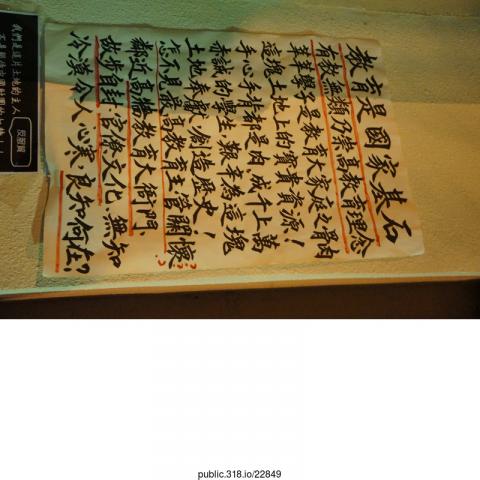 教育是國家基石
有教無類乃崇高教育理念
莘莘學子是教育大家庭之骨肉
這塊土地上的寶貴資源！
手心手背都是肉，成千上萬
赤誠的學生，艱辛為這塊
土地奉獻、創造歷史！
怎不見最高教育主管關懷??
鄰近高牆教育大衙門，
故步自封，官僚文化，無知
冷漠令人心寒，良知何在?
反服貿
我們是這片土地的主人
public.318.io/22849